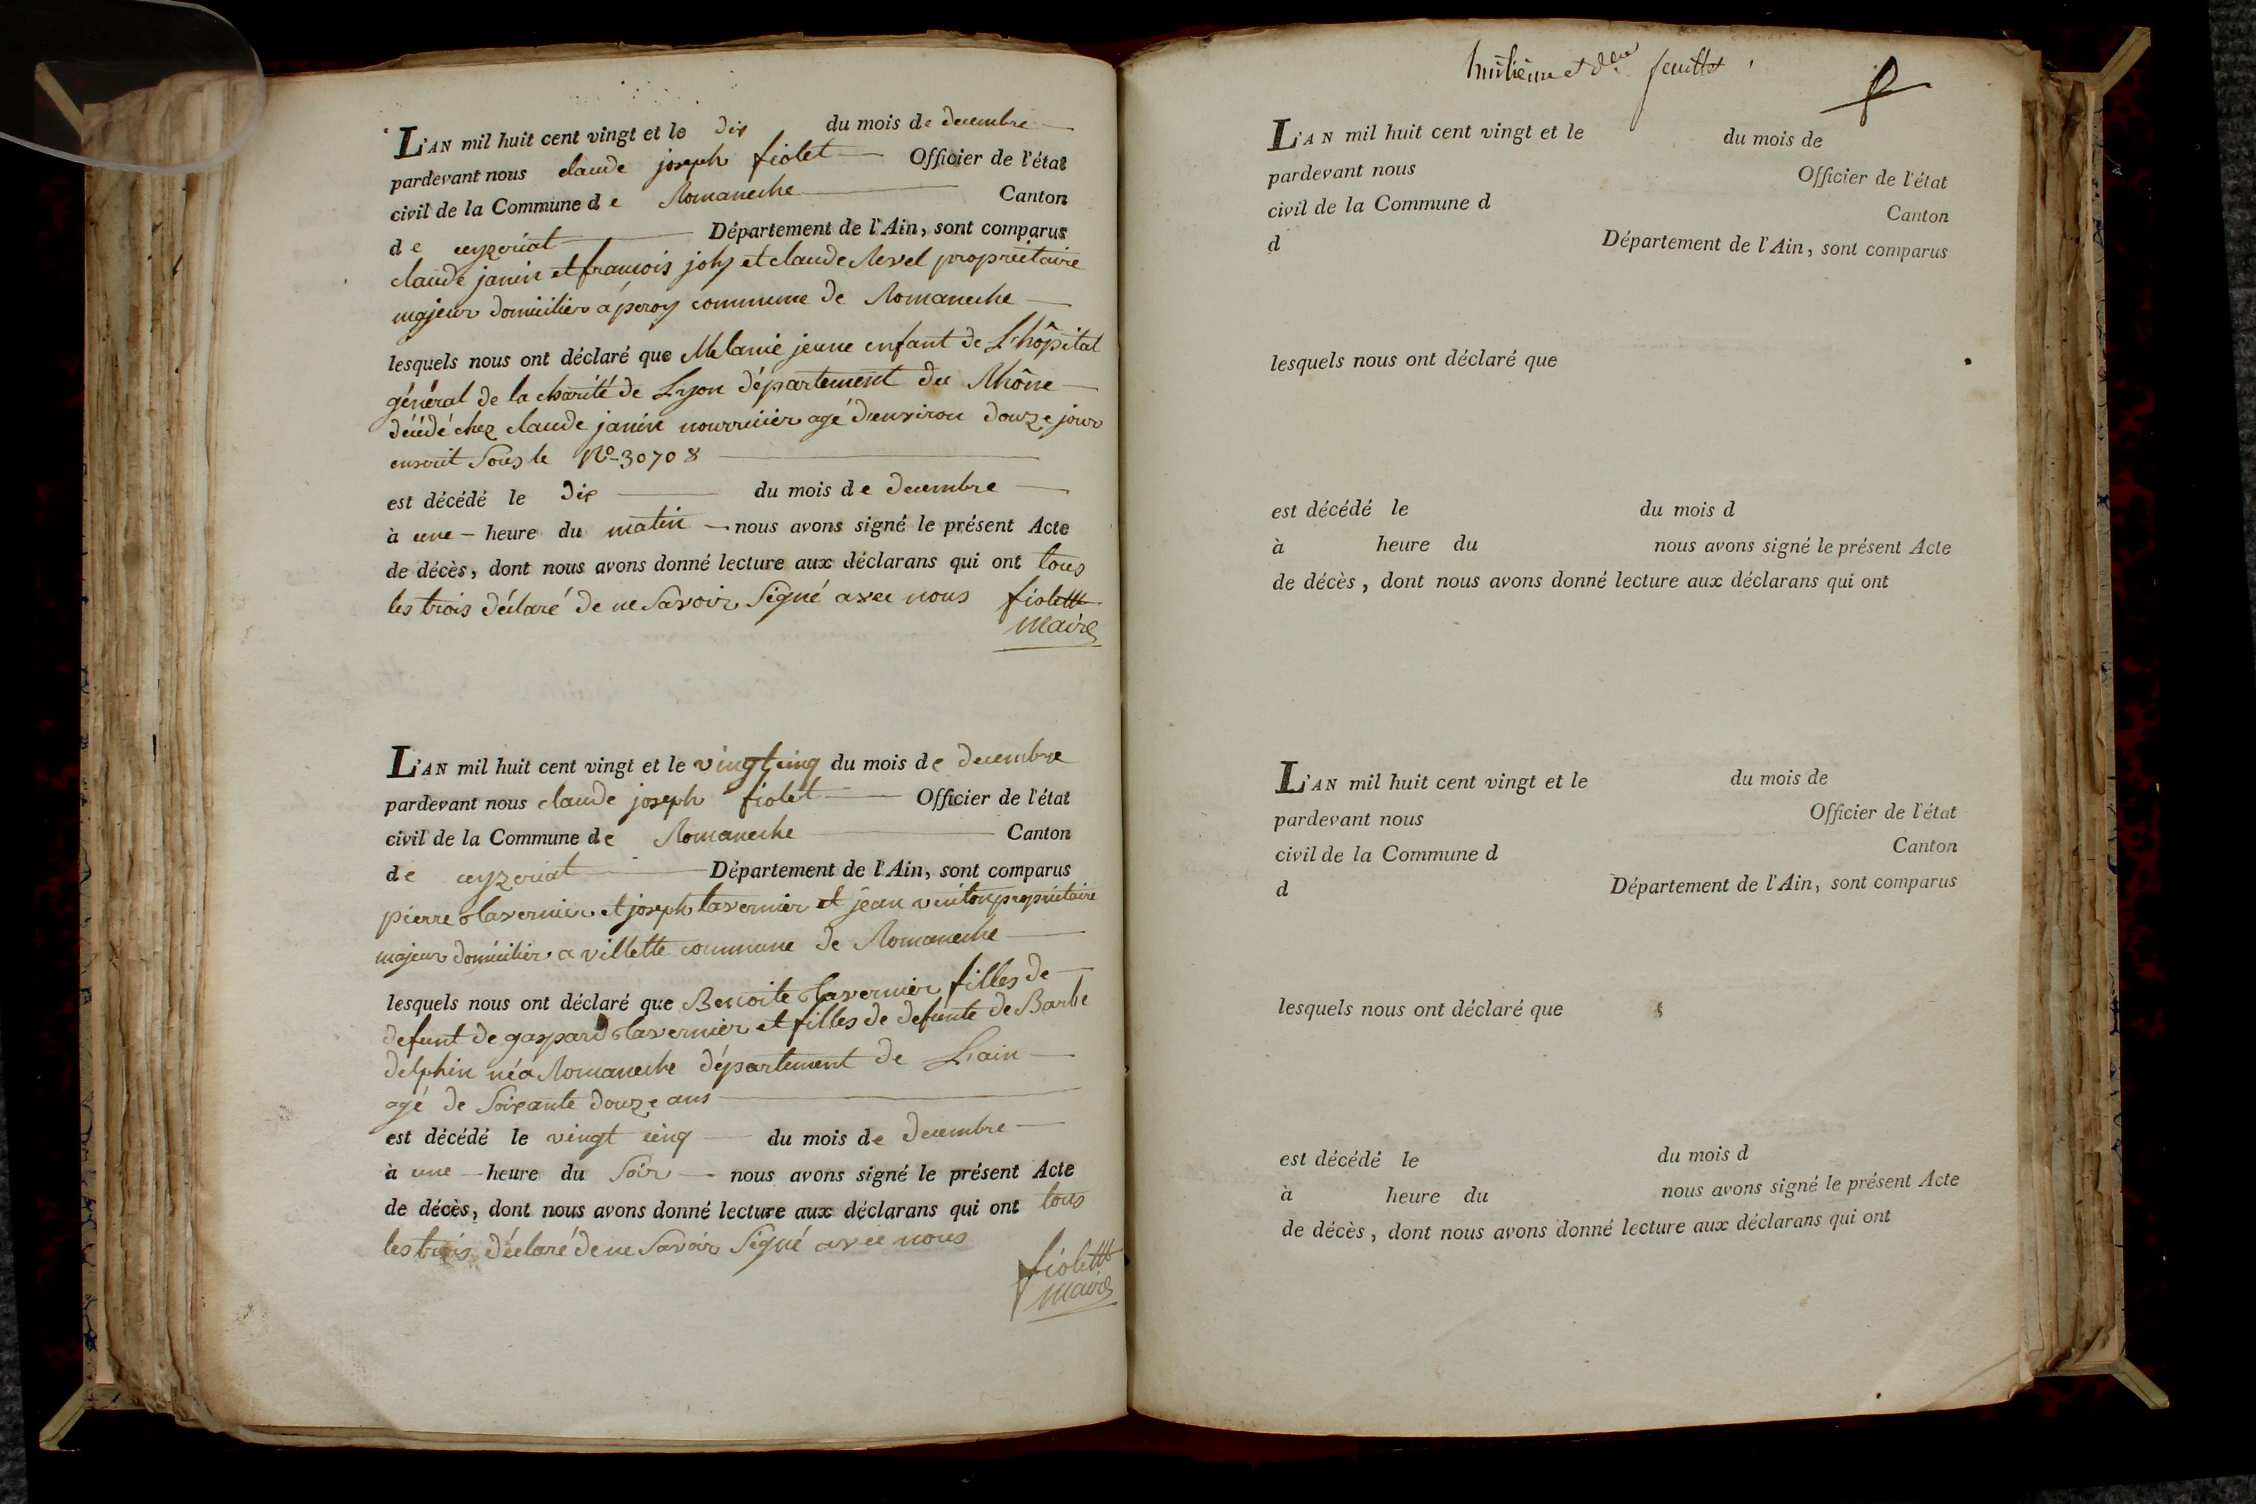 L'AN mil huit cent vingt et le dix du mois de decembre
pardevant nous claude joseph fiolet Officier de l'état
civil de la Commune de Romaneche Canton
de ceyzeriat Département de l'Ain, sont comparus
claude janin et francois joly et claude Revel proprietaire
majeur domicilier a peroy commune de Romaneche
lesquels nous ont déclaré que Melanie jeune enfant de L'hôpital
général de la charité de Lyon département du Rhône
décédé chez claude janin nourricier agé d'environ douze jour
enscrit sous le No 30708
est décédé le dix du mois de decembre
à une heure du matin nous avons signé le présent Acte
de décès, dont nous avons donné lecture aux déclarans qui ont tous
les trois déclaré de ne savoir signé avec nous fiolett
maire
L'AN mil huit cent vingt et le vingt cinq du mois de decembre
pardevant nous claude joseph fiolet Officier de l'état
civil de la Commune de Romaneche Canton
de ceyzeriat Département de l'Ain, sont comparus
pierre tavernier et joseph tavernier et jean propriétaire
majeur domicilier a villette commune de Romaneche
lesquels nous ont déclaré que Benoite tavernier filles de
defunt de gaspard tavernier et filles de defunte de Barbe
delphin né a Romaneche département de L'ain
agé de soixante douze ans
est décédé le vingt cinq du mois de decembre
à une heure du soir nous avons signé le présent Acte
de décès, dont nous avons donné lecture aux déclarans qui ont tous
les trois déclaré de ne savoir signé avec nous
fiolett
maire
huitième et der feuillet
L'AN mil huit cent vingt et le du mois de
pardevant nous Officier de l'état
civil de la Commune d Canton
d Département de l'Ain, sont comparus
lesquels nous ont déclaré que
est décédé le du mois d
à heure du nous avons signé le présent Acte
de décès, dont nous avons donné lecture aux déclarans qui ont
L'AN mil huit cent vingt et le du mois de
pardevant nous Officier de l'état
civil de la Commune d Canton
d Département de l'Ain, sont comparus
lesquels nous ont déclaré que
est décédé le du mois d
à heure du nous avons signé le présent Acte
de décès, dont nous avons donné lecture aux déclarans qui ont